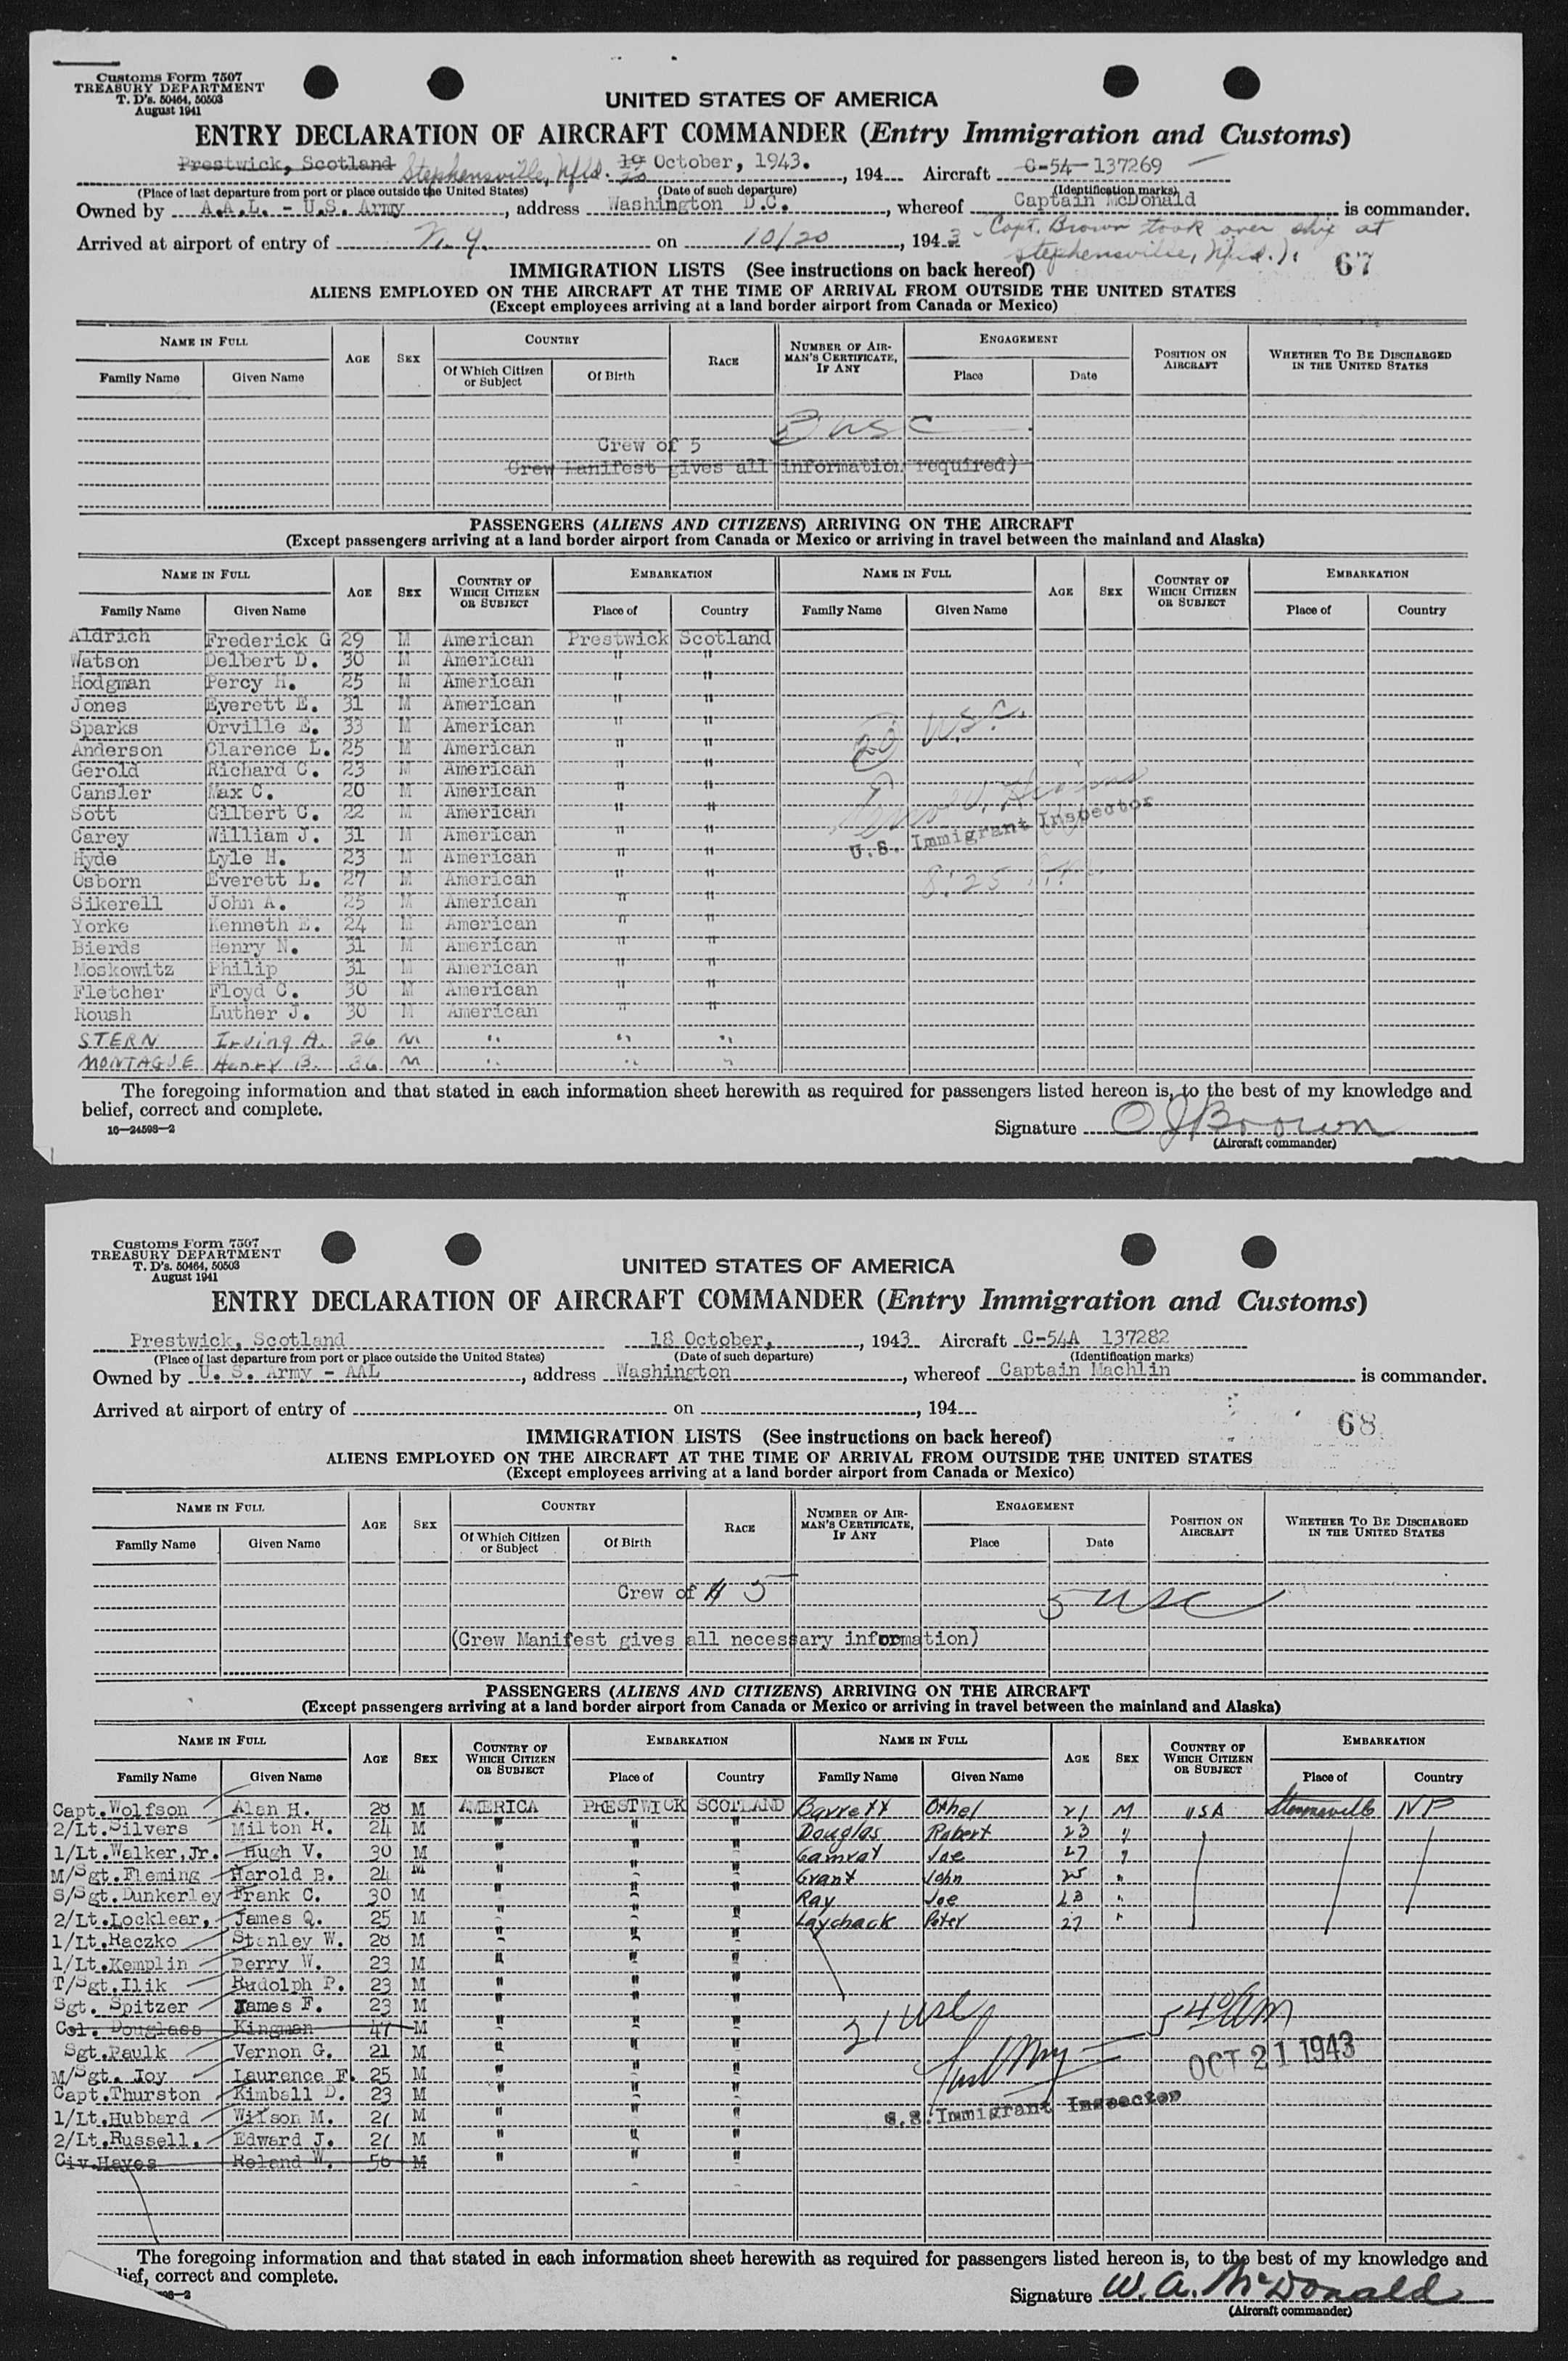 Customs Form 7507
TREASURY DEPARTMENT
T. D's. 50464, 50503
August 1941
UNITED STATES OF AMERICA
ENTRY DECLARATION OF AIRCRAFT COMMANDER (Entry Immigration and Customs)
Prestwick, Scotland Stephensville, Nfld. 19 20 October, 1943. , 194 Aircraft C-54-137269
(Place of last departure from port or place outside the United States) (Date of such departure) (Identification marks)
Owned by A.A.L. - U.S. Army , address Washington D.C. , whereof Captain McDonald is commander.
Arrived at airport of entry of N.Y. on 10/20 , 1943 Capt. Brown took over ship at
Stephensville, Nfld.).
IMMIGRATION LISTS (See instructions on back hereof) 67
ALIENS EMPLOYED ON THE AIRCRAFT AT THE TIME OF ARRIVAL FROM OUTSIDE THE UNITED STATES
(Except employees arriving at a land border airport from Canada or Mexico)
NAME IN FULL AGE SEX COUNTRY RACE NUMBER OF AIRMAN'S CERTIFICATE, IF ANY ENGAGEMENT POSITION ON AIRCRAFT WHETHER TO BE DISCHARGED IN THE UNITED STATES
Family Name Given Name Of Which Citizen or Subject Of Birth Place Date
Crew of 5
Crew Manifest gives all information required)
PASSENGERS (ALIENS AND CITIZENS) ARRIVING ON THE AIRCRAFT
(Except passengers arriving at a land border airport from Canada or Mexico or arriving in travel between the mainland and Alaska)
NAME IN FULL AGE SEX COUNTRY OF WHICH CITIZEN OR SUBJECT EMBARKATION NAME IN FULL AGE SEX COUNTRY OF WHICH CITIZEN OR SUBJECT EMBARKATION
Family Name Given Name Place of Country Family Name Given Name Place of Country
Aldrich Frederick G 29 M American Prestwick Scotland
Watson Delbert D. 30 M American " "
Hodgman Percy H. 25 M American " "
Jones Everett E. 31 M American " "
Sparks Orville E. 33 M American " "
Anderson Clarence L. 25 M American " "
Gerold Richard C. 23 M American " "
Cansler Max C. 20 M American " "
Sott Gilbert C. 22 M American " "
Carey William J. 31 M American " "
Hyde Lyle H. 23 M American " "
Osborn Everett L. 27 M American " "
Sikerell John A. 25 M American " "
Yorke Kenneth E. 24 M American " "
Bierds Henry N. 31 M American " "
Moskowitz Philip 31 M American " "
Fletcher Floyd C. 30 M American " "
Roush Luther J. 30 M American " "
STERN Irving A. 26 M " " "
MONTAGUE Henry B. 36 M " " "
20 U.S.C.
U.S. Immigrant Inspector
8:25
The foregoing information and that stated in each information sheet herewith as required for passengers listed hereon is, to the best of my knowledge and
belief, correct and complete.
16—24598—2
Signature O J Brown
(Aircraft commander)
Customs Form 7507
TREASURY DEPARTMENT
T. D's. 50464, 50503
August 1941
UNITED STATES OF AMERICA
ENTRY DECLARATION OF AIRCRAFT COMMANDER (Entry Immigration and Customs)
Prestwick, Scotland 18 October, , 1943 Aircraft C-54A 137282
(Place of last departure from port or place outside the United States) (Date of such departure) (Identification marks)
Owned by U. S. Army - AAL , address Washington , whereof Captain Machlin is commander.
Arrived at airport of entry of on , 194
IMMIGRATION LISTS (See instructions on back hereof) 68
ALIENS EMPLOYED ON THE AIRCRAFT AT THE TIME OF ARRIVAL FROM OUTSIDE THE UNITED STATES
(Except employees arriving at a land border airport from Canada or Mexico)
NAME IN FULL AGE SEX COUNTRY RACE NUMBER OF AIRMAN'S CERTIFICATE, IF ANY ENGAGEMENT POSITION ON AIRCRAFT WHETHER TO BE DISCHARGED IN THE UNITED STATES
Family Name Given Name Of Which Citizen or Subject Of Birth Place Date
Crew of 5 5 USC
(Crew Manifest gives all necessary information)
PASSENGERS (ALIENS AND CITIZENS) ARRIVING ON THE AIRCRAFT
(Except passengers arriving at a land border airport from Canada or Mexico or arriving in travel between the mainland and Alaska)
NAME IN FULL AGE SEX COUNTRY OF WHICH CITIZEN OR SUBJECT EMBARKATION NAME IN FULL AGE SEX COUNTRY OF WHICH CITIZEN OR SUBJECT EMBARKATION
Family Name Given Name Place of Country Family Name Given Name Place of Country
Capt. Wolfson Alan H. 28 M AMERICA PRESTWICK SCOTLAND Barrett Othel 21 M USA
2/Lt. Silvers Milton R. 24 M " " " Douglas Robert 23 "
1/Lt. Walker, Jr. Hugh V. 30 M " " " Gamrat Joe 27 "
M/Sgt. Fleming Harold B. 24 M " " " Grant John 25 "
S/Sgt. Dunkerley Frank C. 30 M " " " Ray Joe 23 "
2/Lt. Locklear, James Q. 25 M " " " Laychack Peter 27 "
1/Lt. Raczko Stanley W. 28 M " " "
1/Lt. Kemplin Perry W. 23 M " " "
T/Sgt. Ilik Rudolph P. 23 M " " "
Sgt. Spitzer James F. 23 M " " "
Col. Douglass Kingman 47 M " " "
Sgt. Paulk Vernon G. 21 M " " "
M/Sgt. Joy Laurence F. 25 M " " "
Capt. Thurston Kimball D. 23 M " " "
1/Lt. Hubbard Wilson M. 21 M " " "
2/Lt. Russell, Edward J. 21 M " " "
Civ. Hayes Roland W. 56 M " " "
21 USC
540 AM
OCT 21 1943
U.S. Immigrant Inspector
The foregoing information and that stated in each information sheet herewith as required for passengers listed hereon is, to the best of my knowledge and
lief, correct and complete.
98—2
Signature W. A. McDonald
(Aircraft commander)